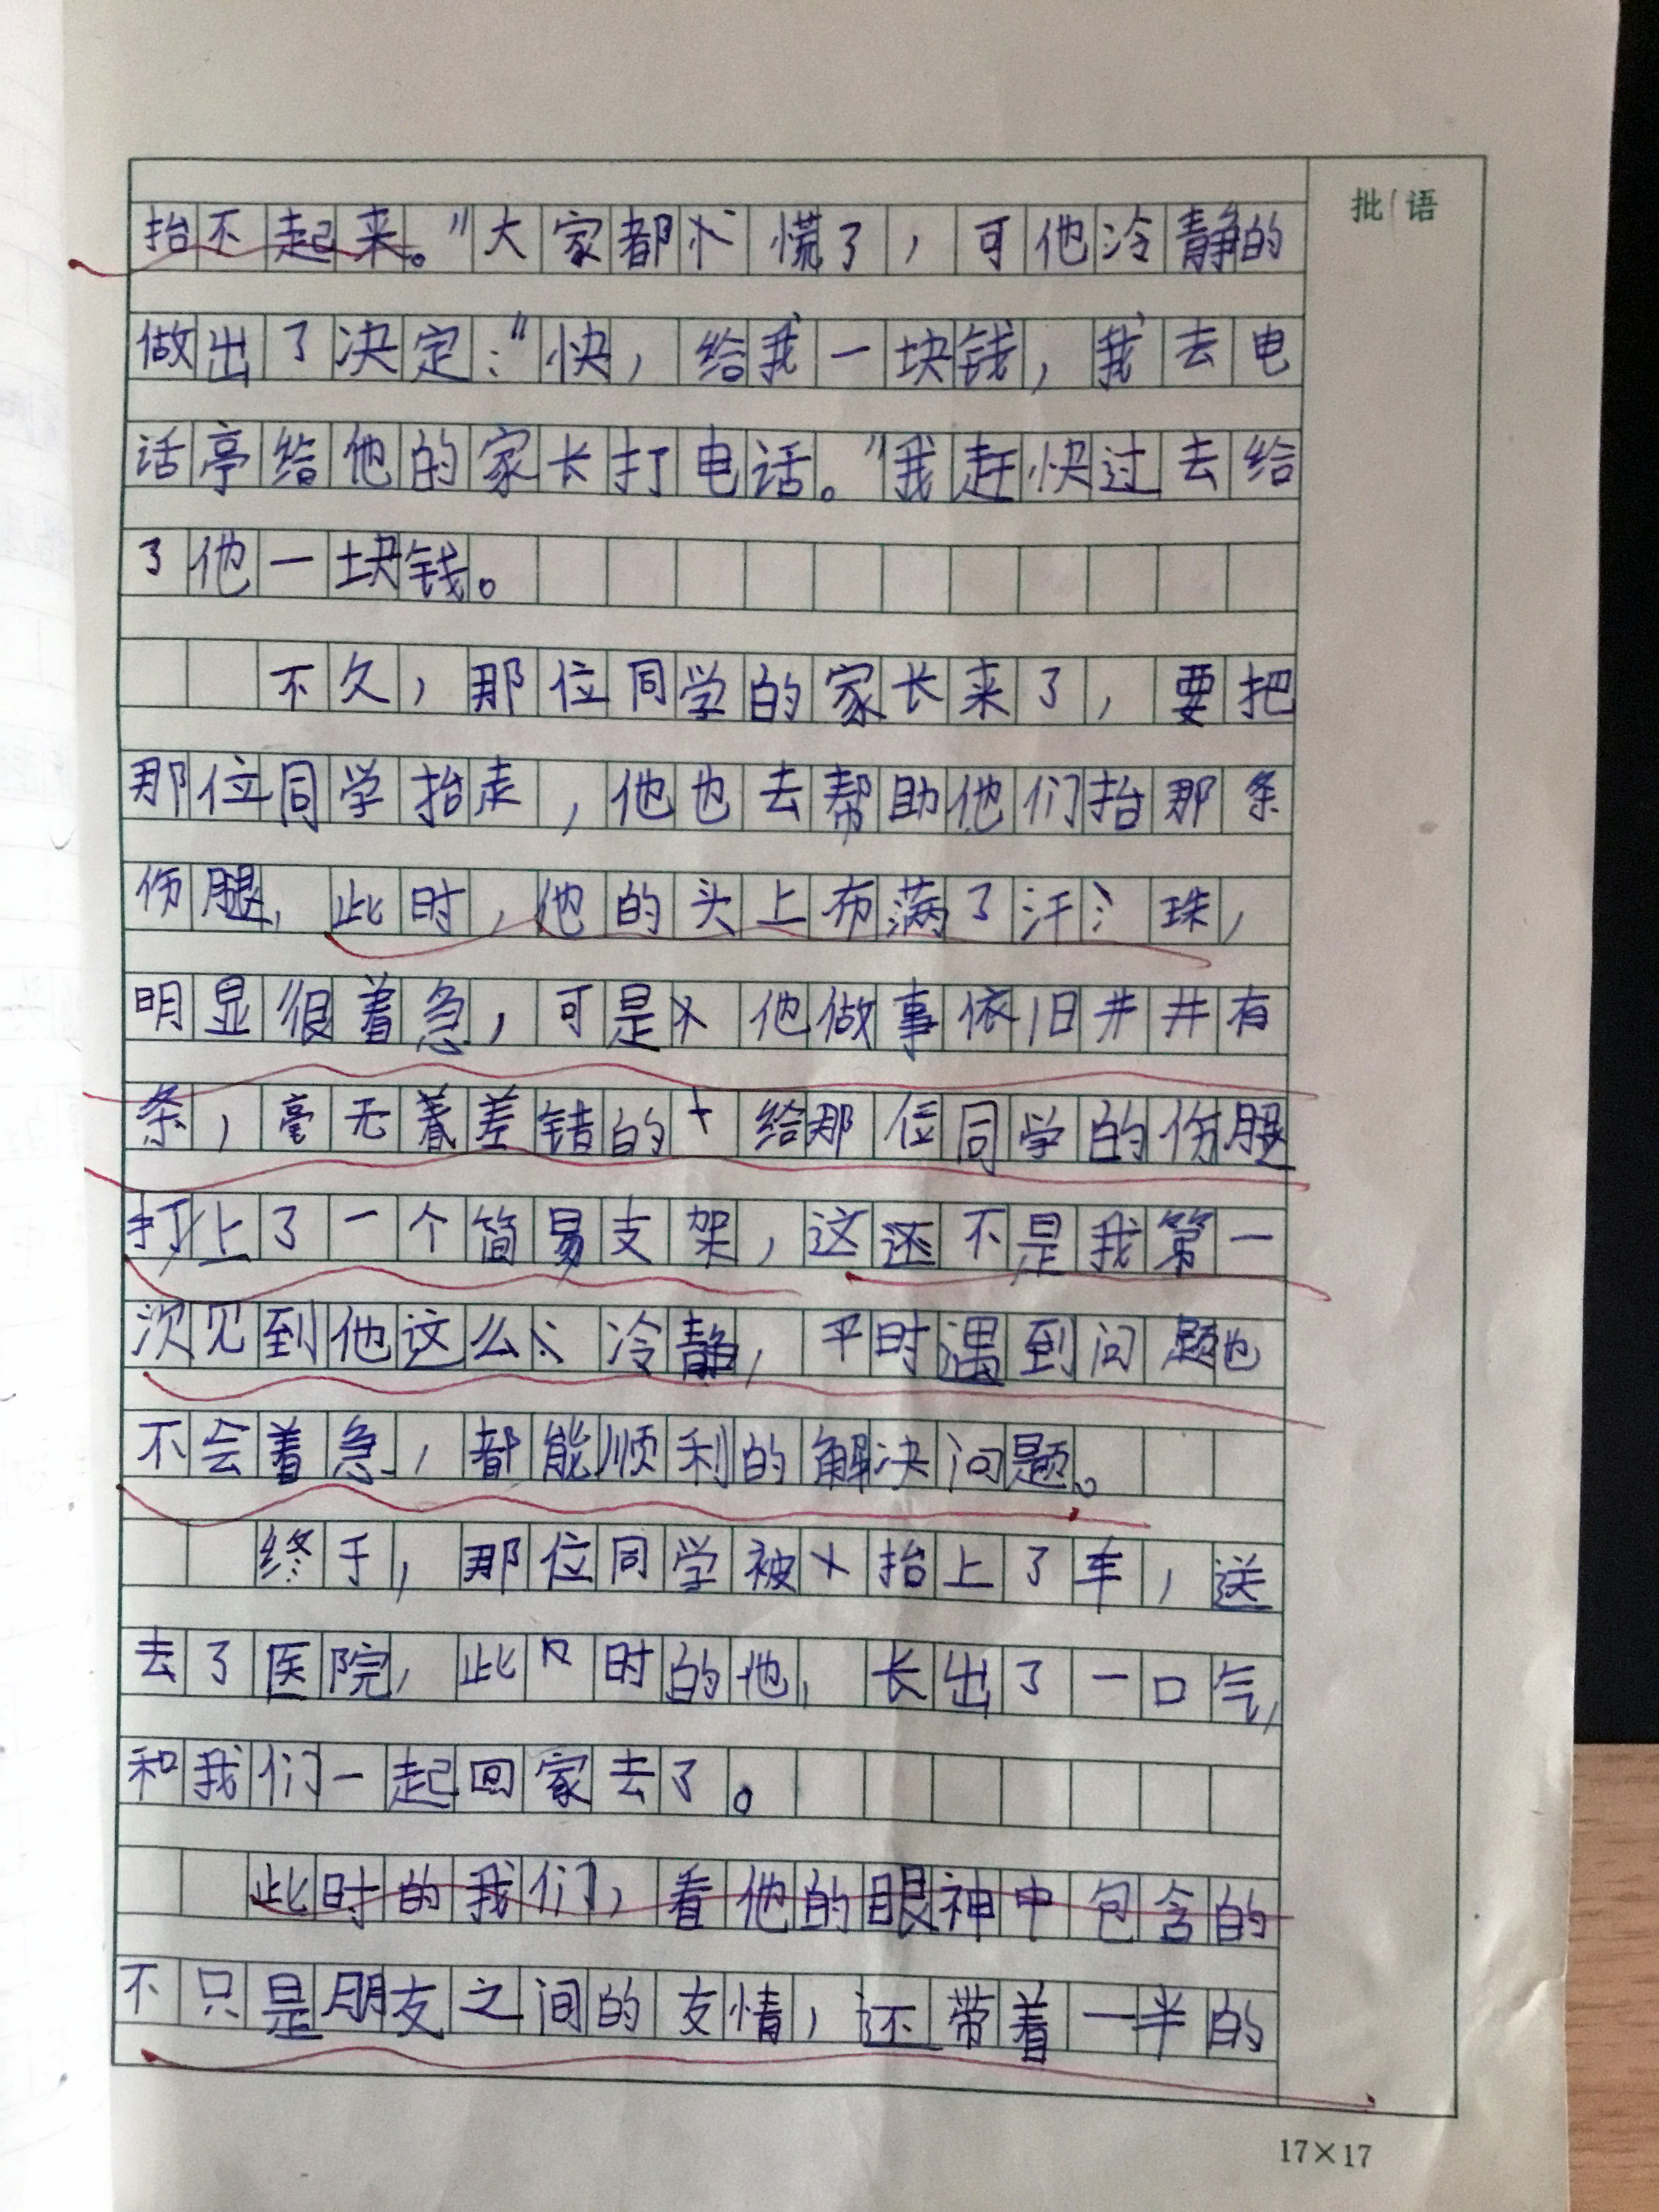 批语
抬不起来。"大家都慌了，可他冷静的
做出了决定："快，给我一块钱，我去电
话亭给他的家长打电话。"我赶快过去给
了他一块钱。
不久，那位同学的家长来了，要把
那位同学抬走，他也去帮助他们抬那条
伤腿，此时，他的头上布满了汗珠，
明显很着急，可是他做事依旧井井有
条，毫无着差错的给那位同学的伤腿
打上了一个简易支架，这还不是我第一
次见到他这么冷静，平时遇到问题也
不会着急，都能顺利的解决问题。
终于，那位同学被抬上了车，送
去了医院，此时的他，长出了一口气，
和我们一起回家去了。
此时的我们，看他的眼神中包含的
不只是朋友之间的友情，还带着一半的
17×17